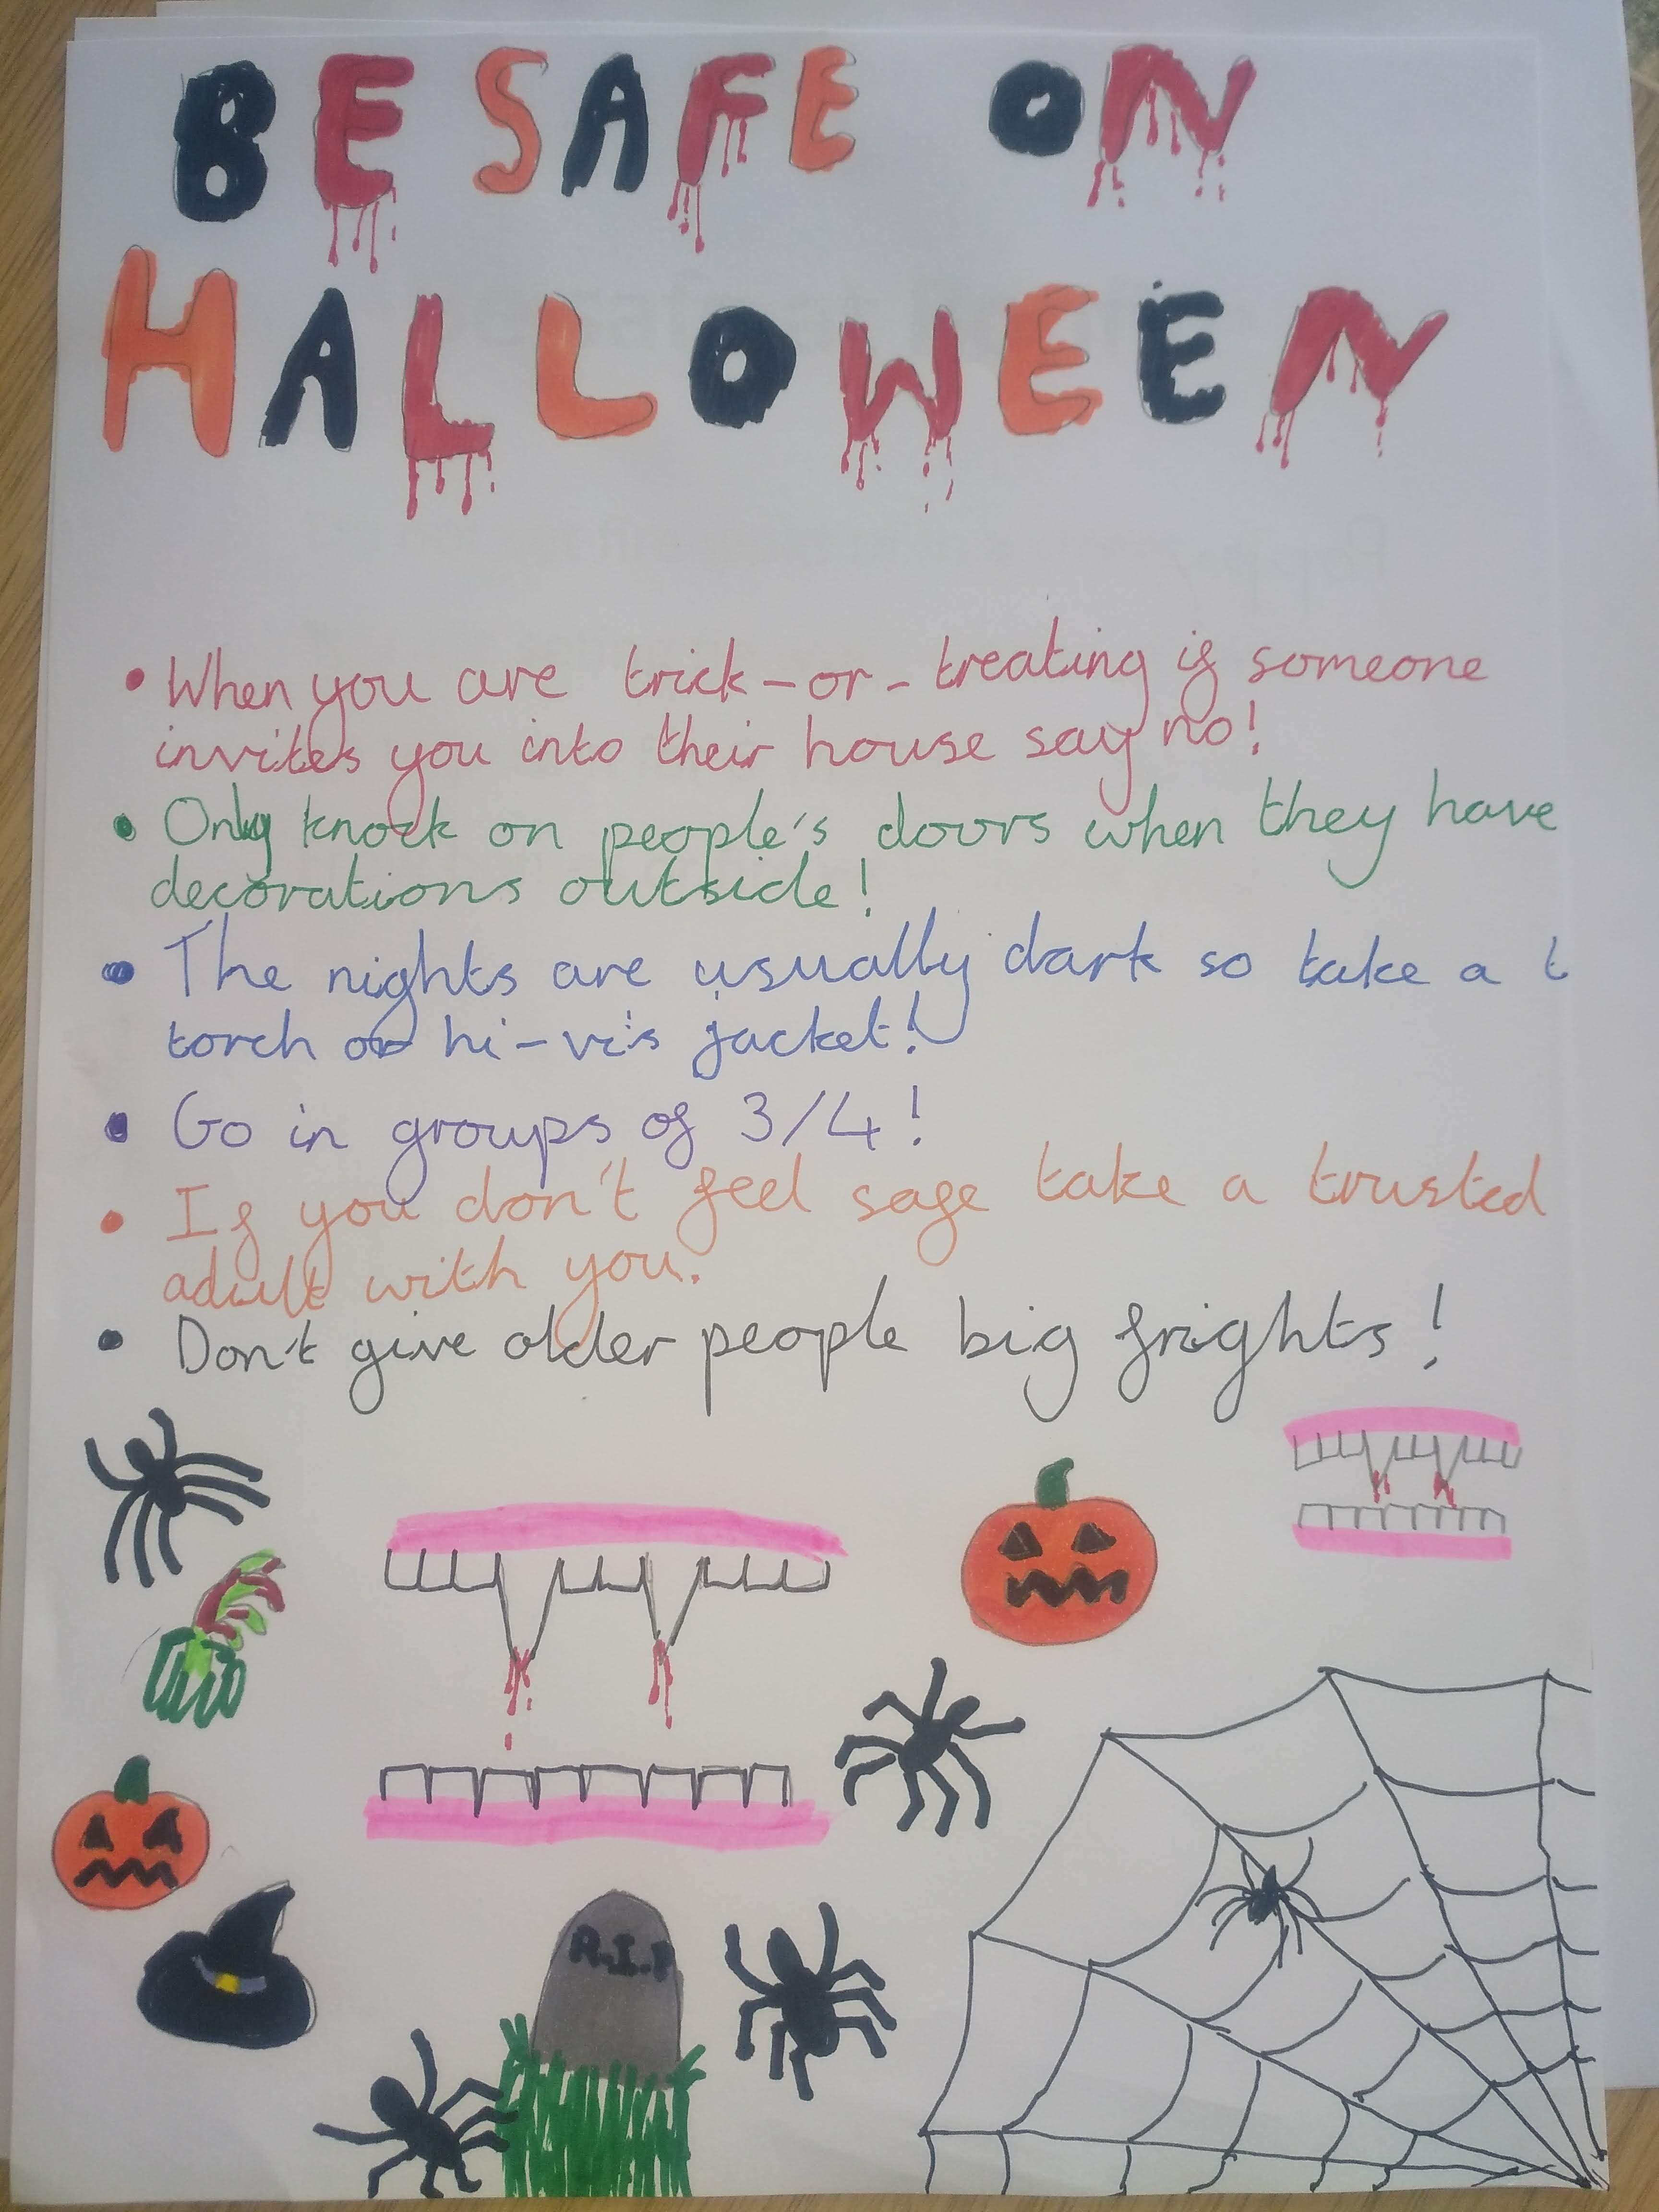 BE SAFE ON
HALLOWEEN
• When you are trick-or-treating if someone
invites you into their house say no!
• Only knock on people's doors when they have
decorations outside!
• The nights are usually dark so take a t
torch or hi-vis jacket!
• Go in groups of 3/4!
• If you don't feel safe take a trusted
adult with you.
• Don't give older people big frights!
R.I.P